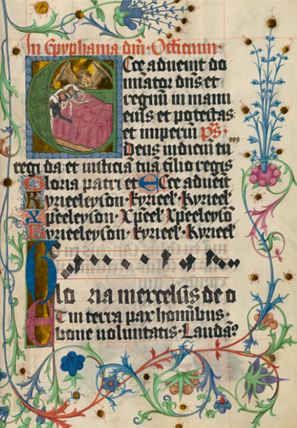 In Epyphania dni Officium
Cce advenit do
minator dns et
regnū in manu
eius et potestas
et imperiū ps
Deus iudiciū tuū
regi da et iusticiā tuā filio regis
Gloria patri et Ecce advenit
Kyrieeleyson · kyrieel · kyrieel
Xpeeleyson · Xpeel · Xpeeleyso
Kyrieeleyson · kyrieel · kyrieel
lo ria in excelsis de o
Et in terra pax hominibus
bone voluntatis · Lauda